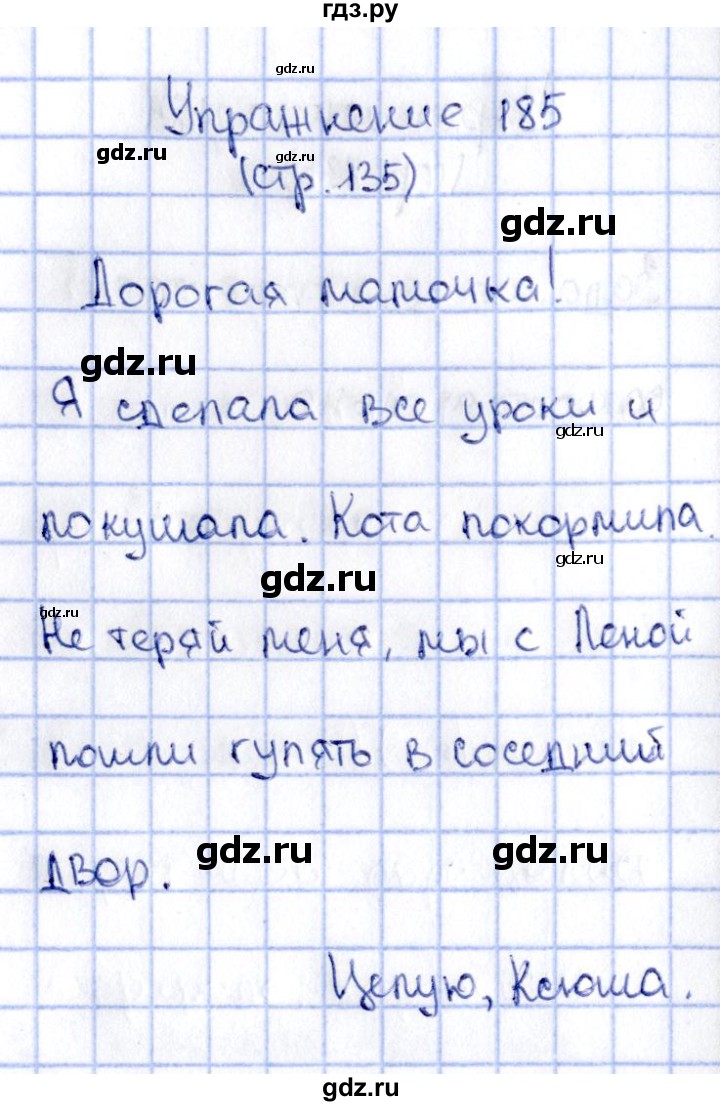 гдз.ру
gdz.ru
Упражнение 185
gdz.ru gdz.ru
(стр. 135)
gdz.ru
Дорогая мамочка!
gdz.ru
Я сделала все уроки и
gdz.ru
покушала. Кота покормила.
gdz.ru
gdz.ru
gdz.ru
Не теряй меня, мы с Леной
пошли гулять в соседний
gdz.ru gdz.ru
двор.
Целую, Ксюша.
gdz.ru